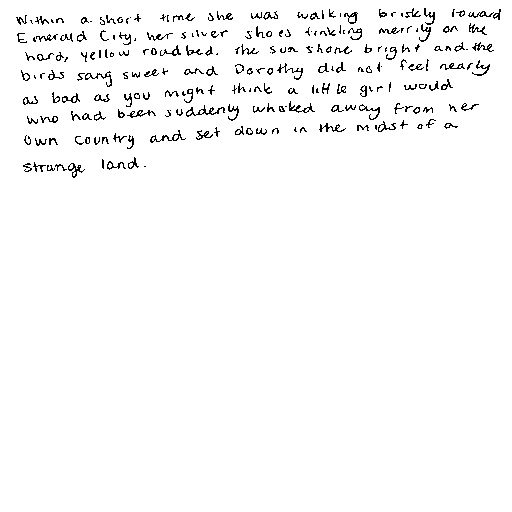 Within a short time she was walking briskly toward
Emerald City, her silver shoes tinkling merrily on the
hard, yellow roadbed. The sun shone bright and the
birds sang sweet and Dorothy did not feel nearly
as bad as you might think a little girl would
who had been suddenly whisked away from her
own country and set down in the midst of a
strange land.